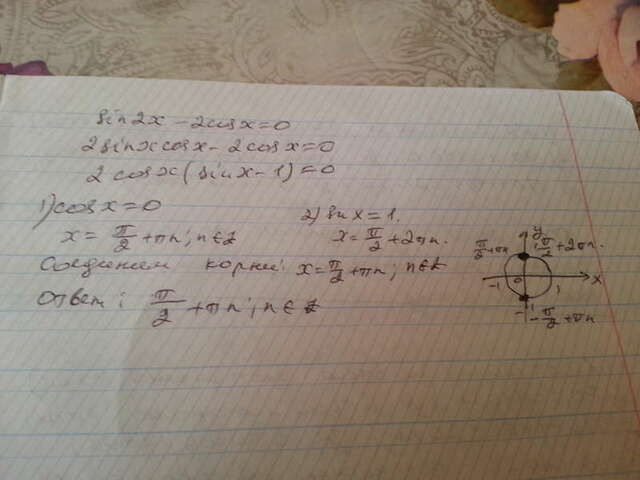 sin2x - 2cosx = 0
2sinxcosx - 2cosx = 0
2cosx(sinx - 1) = 0
1) cosx = 0 2) sinx = 1.
x = π/2 + πn; n∈Z x = π/2 + 2πn.
Соединяем корни: x = π/2 + πn; n∈Z
Ответ: π/2 + πn; n∈Z
y
π/2 + πn π/2 + 2πn.
-1 0 1 x
-1 -π/2 + πn